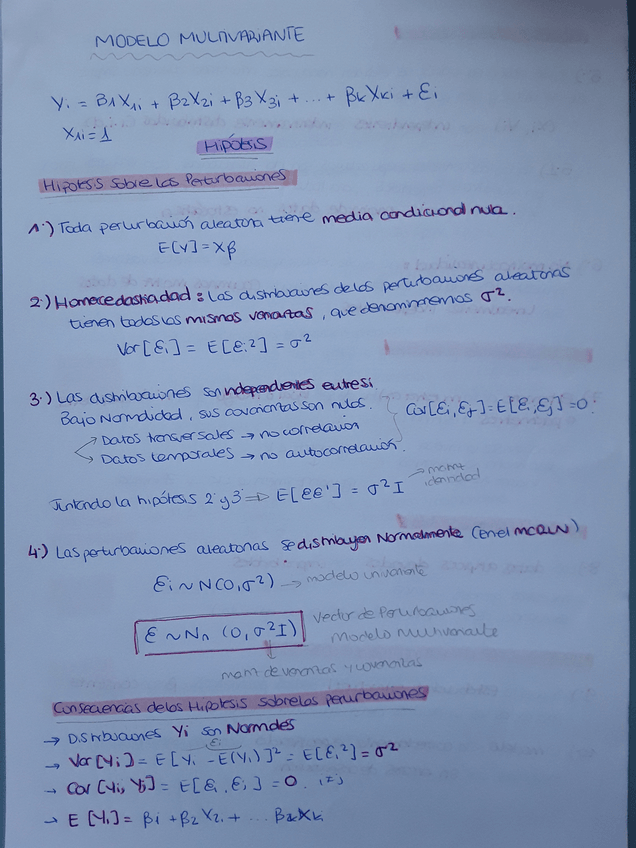 MODELO MULTIVARIANTE
Yi = β1X1i + β2X2i + β3X3i + ... + βkXki + εi
X1i = 1
HIPÓTESIS
HIPOTESIS SOBRE LAS PERTURBACIONES
1.) Toda perturbación aleatoria tiene media condicional nula.
E[Y] = Xβ
2.) Homocedasticidad: Las distribuciones de las perturbaciones aleatorias
tienen todas las mismas varianzas, que denominaremos σ².
Var[εi] = E[εi²] = σ²
3.) Las distribuciones son independientes entre sí
Bajo Normalidad, sus covarianzas son nulas. Cov[εi, εj] = E[εi, εj] = 0.
→ Datos transversales → no correlación
→ Datos temporales → no autocorrelación.
Juntando la hipótesis 2 y 3 ⇒ E[εε'] = σ²I → matriz identidad
4.) Las perturbaciones aleatorias se distribuyen Normalmente (en el MCRLN)
εi ~ N(0, σ²) → modelo univariante
ε ~ Nn (0, σ²I) vector de Perturbaciones
Modelo Multivariante
matriz de varianzas y covarianzas
Consecuencias de las Hipótesis sobre las Perturbaciones
→ Distribuciones Yi son Normales
εi
→ Var[Yi] = E[Yi - E(Yi)]² = E[εi²] = σ²
→ Cov[Yi, Yj] = E[εi, εj] = 0. i≠j
→ E[Yi] = βi + β2X2i + ... βkXki